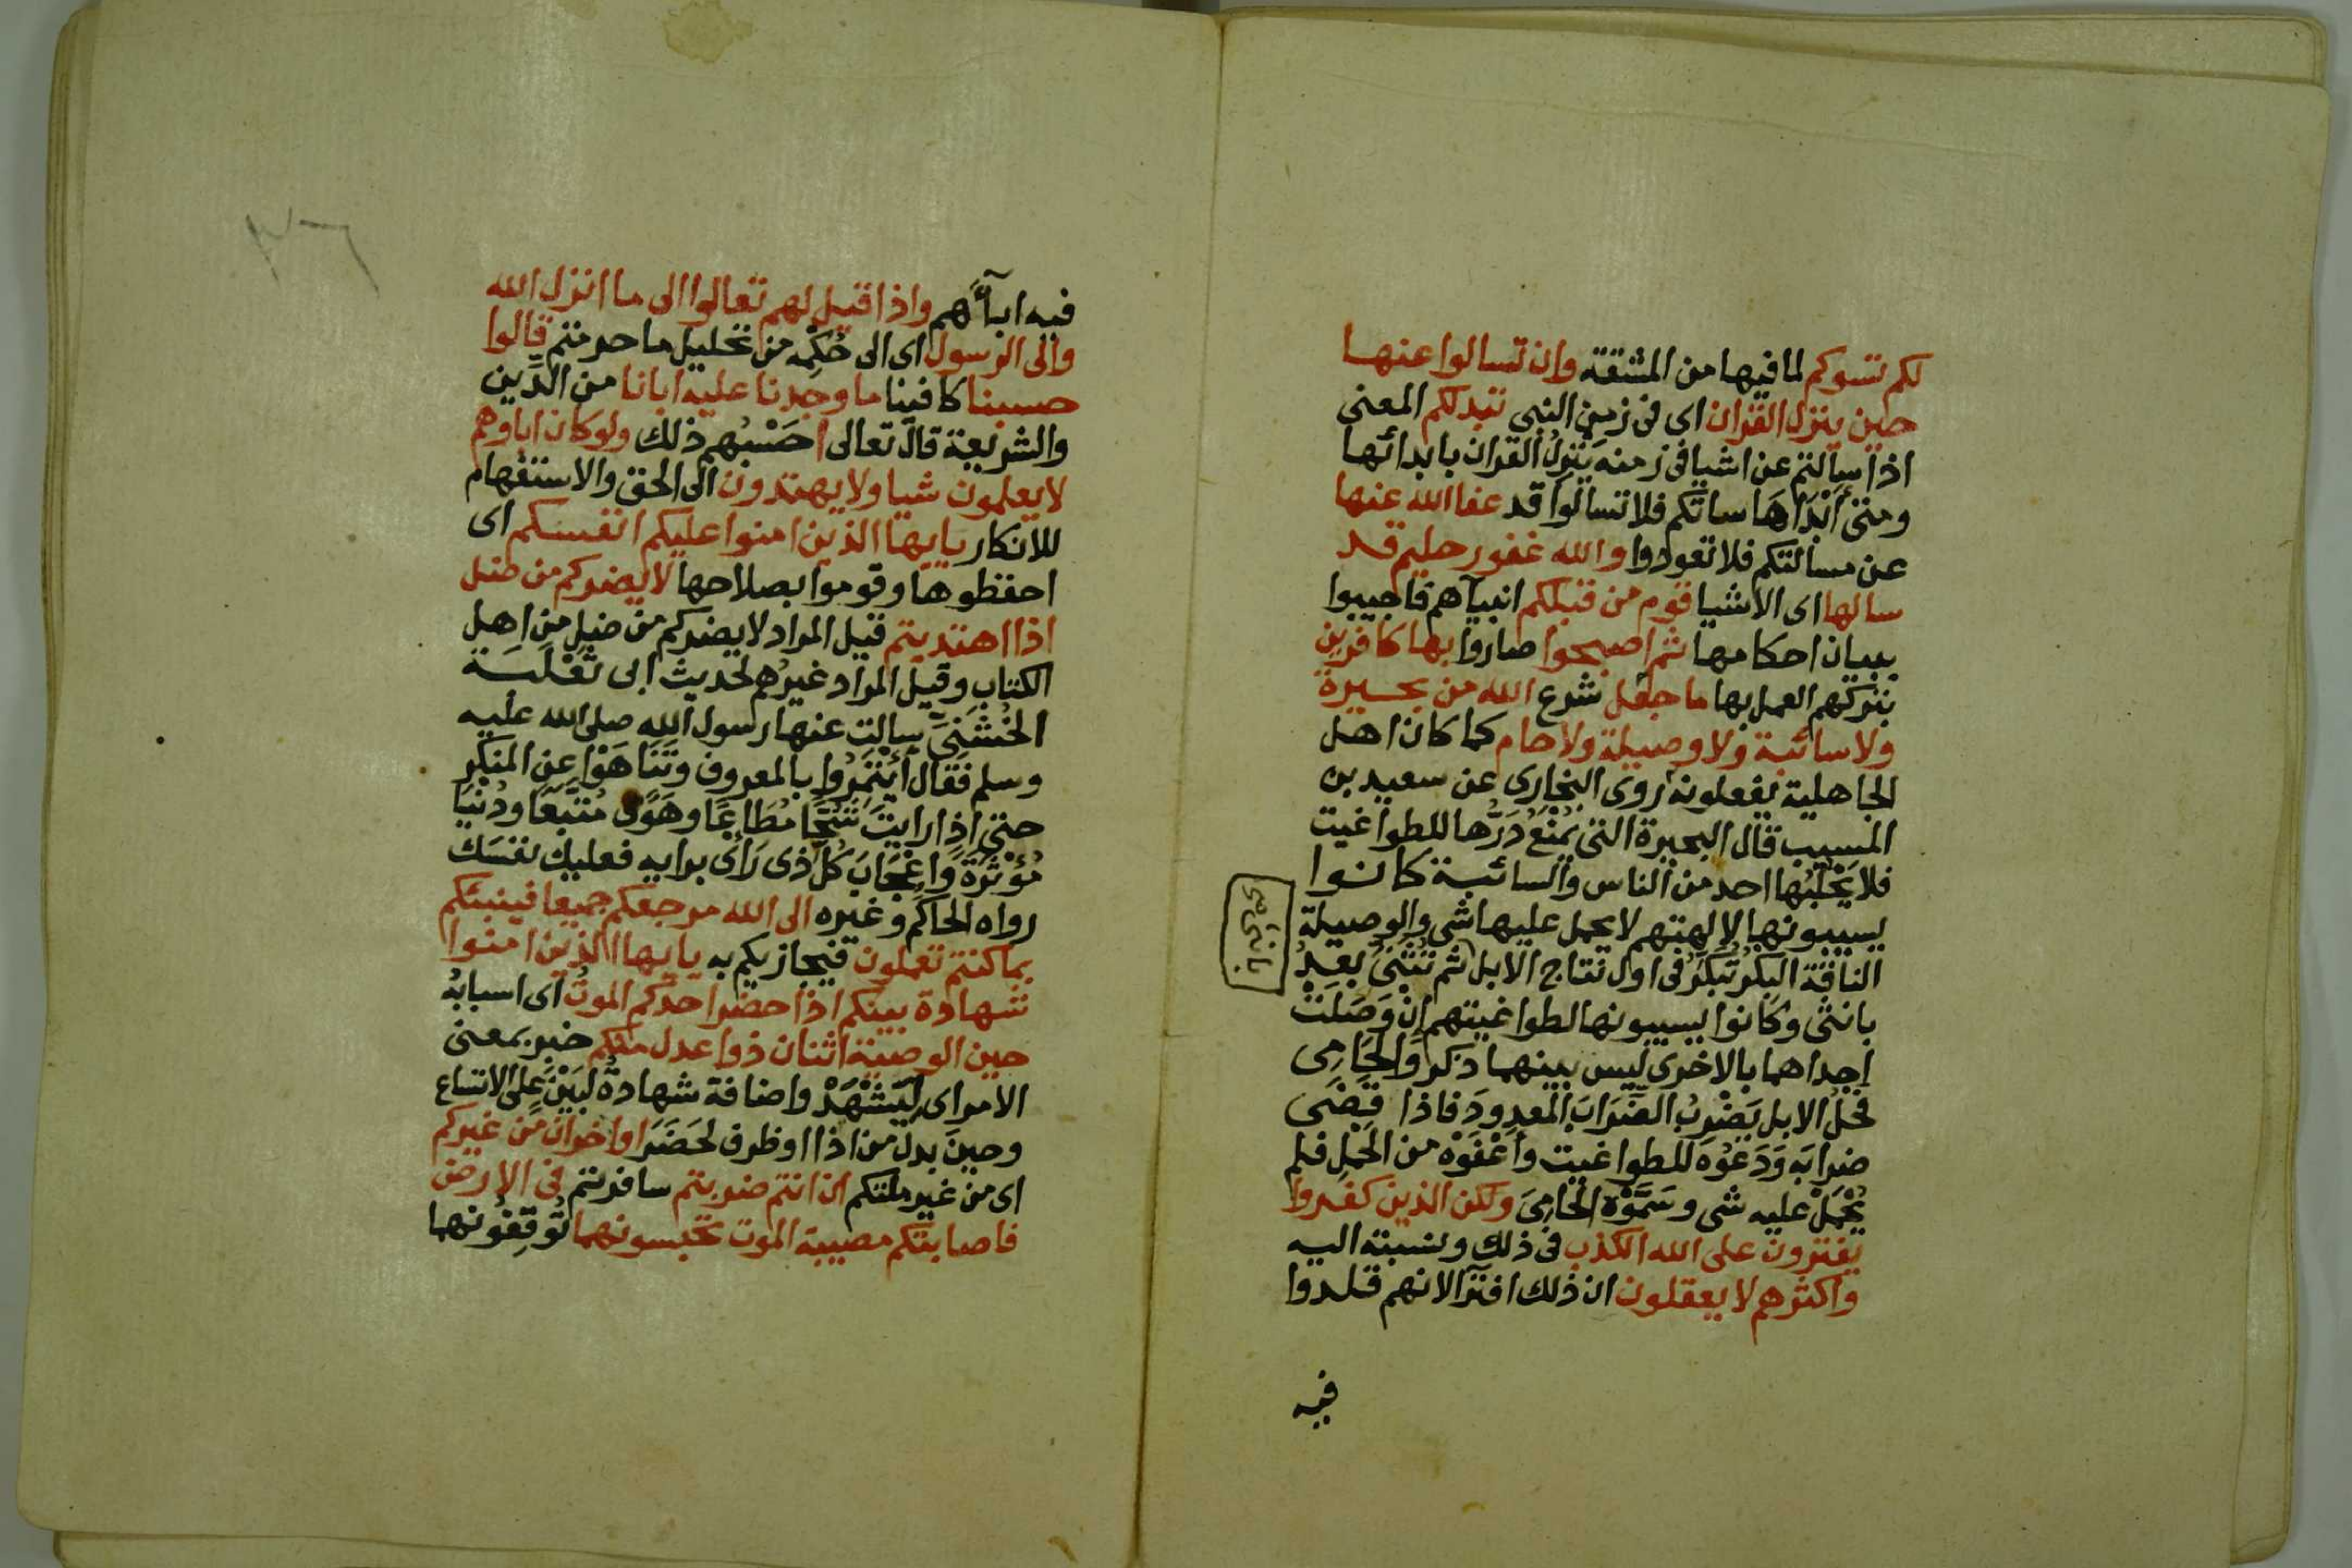 لكم تسوكم لما فيها من المشقة وان تسالوا عنها
حين ينزل القران اى فى زمن النبى تبدلكم المعنى
اذا سالتم عن اشيا فى زمنه يَنْزِلُ القران بابدائها
ومتى أَبْدَاهَا ساتكم فلا تسالوا قد عفا الله عنها
عن مسالتكم فلا تعودوا والله غفور حليم قد
سالها اى الاشيا قوم من قبلكم انبيآهم فاجيبوا
ببيان احكامها ثم اصبحوا صاروا بها كافرين
بتركهم العمل بها ما جعل شرع الله من بحيرة
ولا سائبة ولا وصيلة ولا حام كما كان اهل
الجاهلية يفعلونه روى البخارى عن سعيد بن
المسيب قال البحيرة التى يُمْنَعُ دَرُّها للطواغيت
فلا يَحْلِبُها احد من الناس والسائبة كانوا
يسيبونها لالهتهم لا يحمل عليها شى والوصيلة
الناقة البكر تُبَكِّرُ فى اول نتاج الابل ثم تُثَنِّى بَعْدُ
بانثى وكانوا يسيبونها لطواغيتهم اِنْ وَصَلَتْ
احداهما بالاخرى ليس بينهما ذكر وَالحَامِى
فحْلُ الابل يَضْرِبُ الضِّرَابَ المعدودَ فاذا قَضَى
ضرابَه وَدَعُوْه للطواغيت وأَعْفَوْه من الحَمْلِ فلم
يُحْمَلْ عليه شى وسَمَّوْه الحامِىَ ولكن الذين كفروا
يفترون على الله الكذب فى ذلك ونسبته اليه
واكثرهم لا يعقلون ان ذلك افترآ لانهم قلدوا
فيه
فيه ابآءهم واذا قيل لهم تعالوا الى ما انزل الله
والى الرسول اى الى حُكْمِه من تحليل ما حرمتم قالوا
حسبنا كافينا ما وجدنا عليه ابانا من الدِّين
والشريعة قال تعالى أحَسْبُهم ذلك ولو كان اباوهم
لا يعلمون شيا ولا يهتدون الى الحق والاستفهام
للانكار يايها الذين امنوا عليكم انفسكم اى
احفظوها وقوموا بصلاحها لا يضركم من ضل
اذا اهتديتم قيل المراد لا يضركم من ضل من اهل
الكتاب وقيل المراد غيرهم لحديث ابى ثَعْلَبَـة
الخُشَنِىّ سالت عنها رسول الله صلى الله عليه
وسلم فقال اْئْتَمِرُوا بالمعروف وتَنَاهَوْا عن المنكر
حتى اذا رايتَ شُحًّا مُطَاعًا وهَوًى مُتَّبَعًا ودُنْيَا
مُؤْثَرَةً وَاِعْجَابَ كُلّ ذى رَاىٍ برايه فعليك نفسَك
رواه الحاكم وغيره الى الله مرجعكم جميعا فينبئكم
بما كنتم تعملون فيجازيكم به يايها الذين امنوا
شهادة بينكم اذا حضر احدكم الموتُ اى اسبابُه
حين الوصية اثنان ذوا عدل منكم خبر بمعنى
الامر اى لِيَشْهَدْ واضافة شهادة لِبَيْن على الاتساع
وحينَ بدل من اذا او ظرف لحَضَرَ او اخران من غيركم
اى من غير ملتكم ان انتم ضربتم سافرتم فى الارض
فاصابتكم مصيبة الموت تحبسونهما تُوقِفُونهما